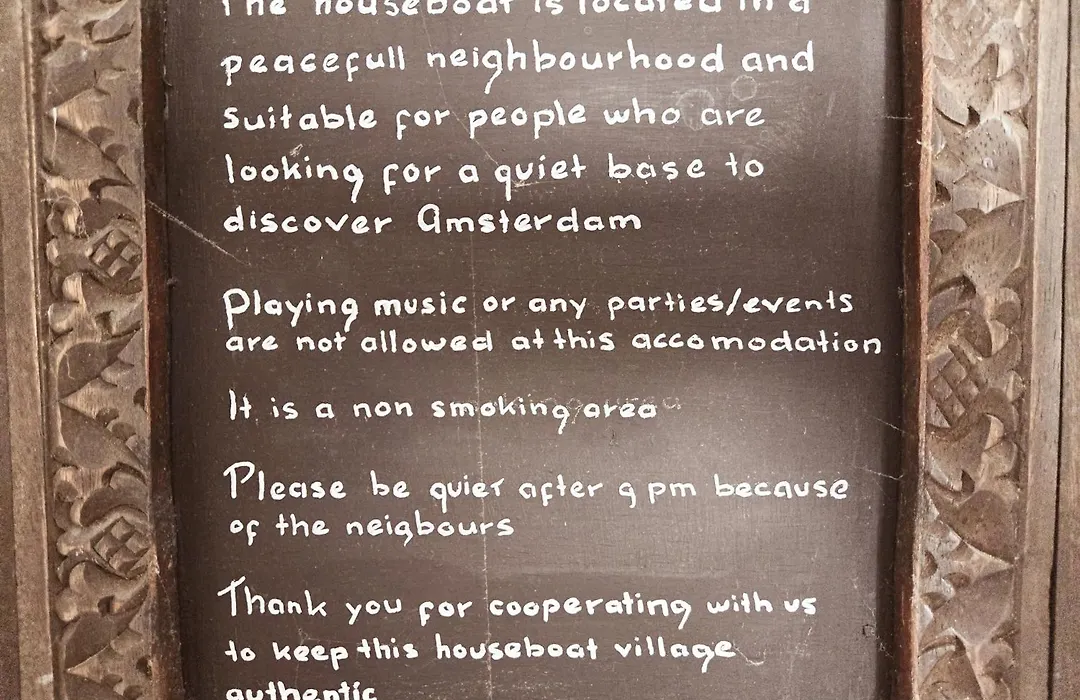 The houseboat is located in a
peacefull neighbourhood and
suitable for people who are
looking for a quiet base to
discover Amsterdam
Playing music or any parties/events
are not allowed at this accomodation
It is a non smoking area
Please be quiet after 9 pm because
of the neigbours
Thank you for cooperating with us
to keep this houseboat village
authentic